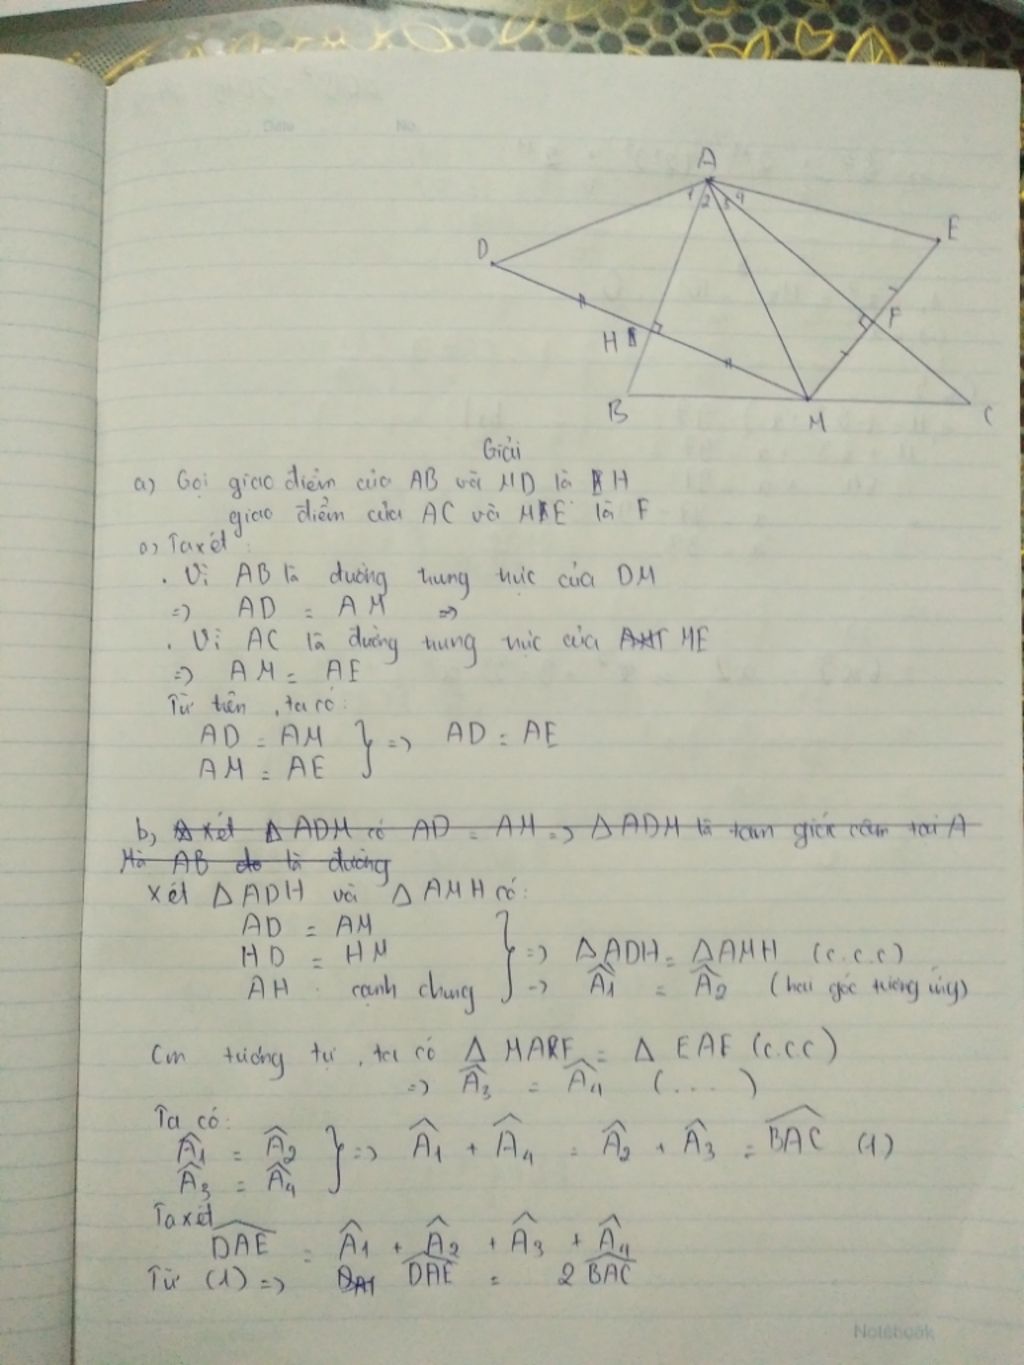 Date
No.
A
1 2 3 4
D
E
H
F
B
M
C
Giải
a) Gọi giao điểm của AB và MD là H
giao điểm của AC và ME là F
a) Ta xét:
. Vì AB là đường trung trực của DM
=> AD = AM =>
. Vì AC là đường trung trực của ME
=> AM = AE
Từ trên, ta có:
AD = AM } => AD = AE
AM = AE
b, xét Δ ADM có AD = AM => Δ ADM là tam giác cân tại A
Mà AB là đường
Xét Δ ADH và Δ AMH có:
AD = AM
HD = HM } => Δ ADH = Δ AMH (c.c.c)
AH cạnh chung => Â1 = Â2 (hai góc tương ứng)
Cm tương tự, ta có Δ MAF = Δ EAF (c.c.c)
=> Â3 = Â4 (....)
Ta có:
Â1 = Â2 } => Â1 + Â4 = Â2 + Â3 = BAC (1)
Â3 = Â4
Ta xét
DAE = Â1 + Â2 + Â3 + Â4
Từ (1) => DAE = 2 BAC
Notebook